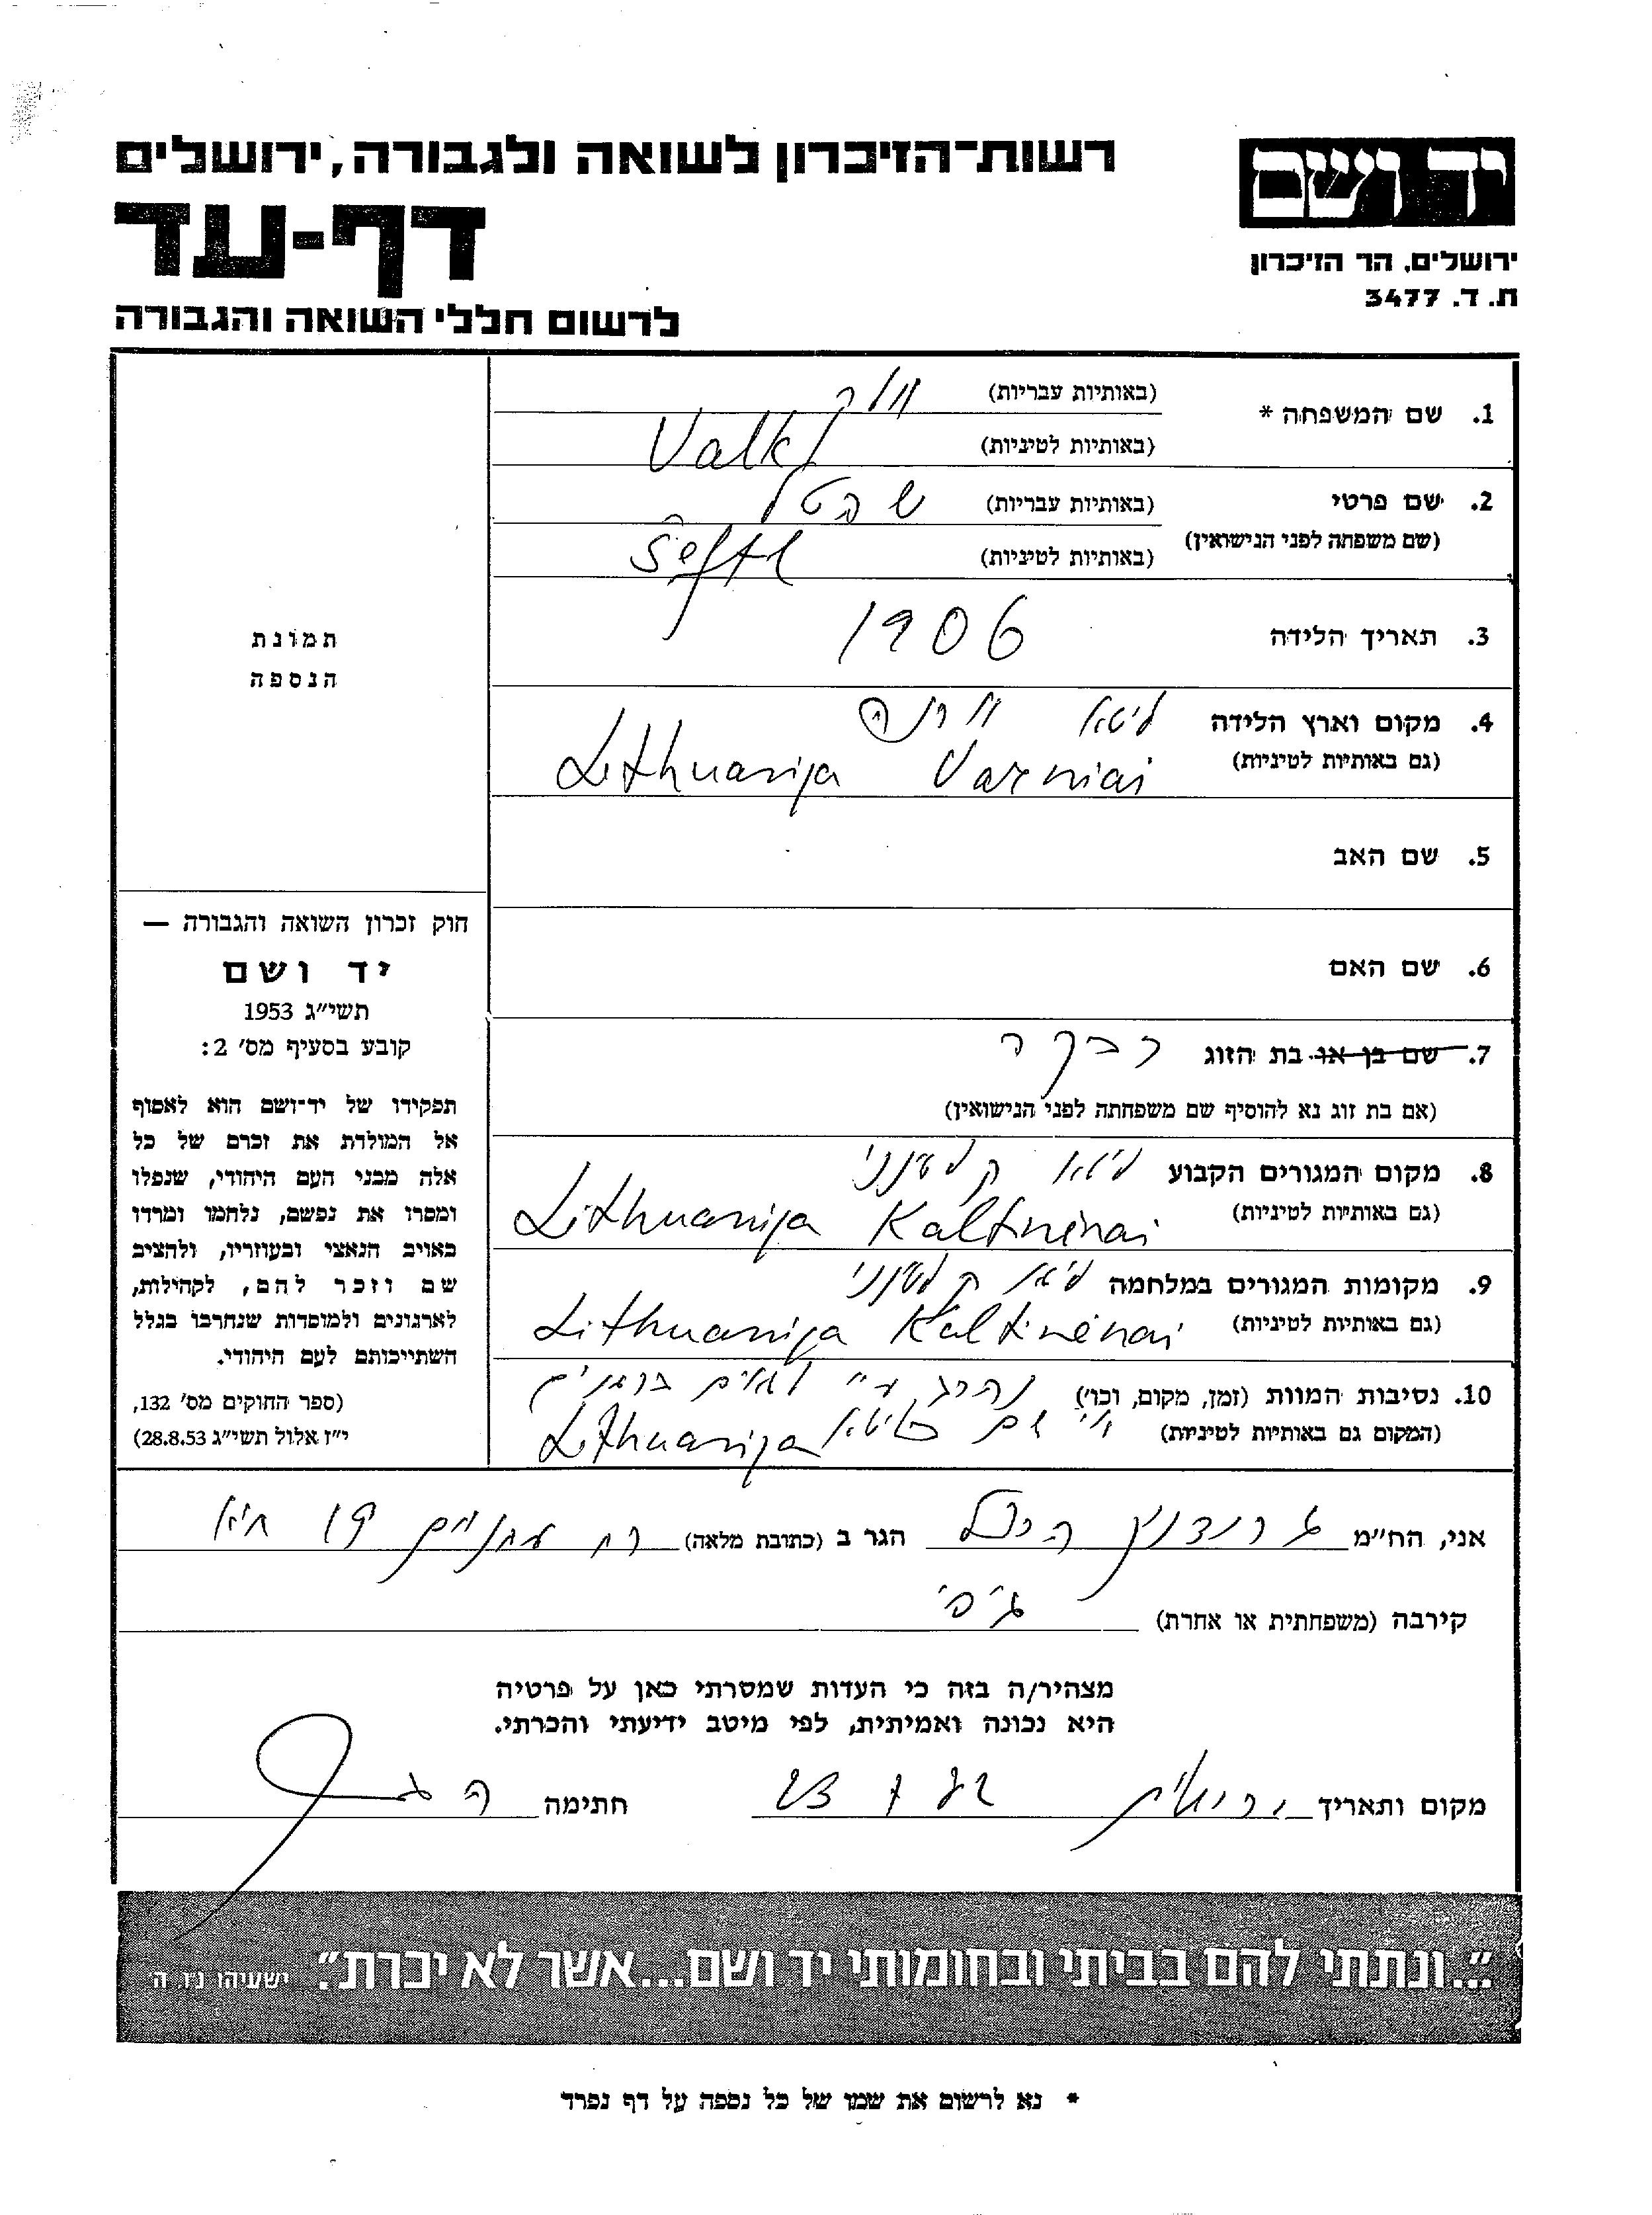 רשות־הזיכרון לשואה ולגבורה, ירושלים
יד ושם
דף-עד
ירושלים, הר הזיכרון
ת. ד. 3477
לרשום חללי השואה והגבורה
1. שם המשפחה *
(באותיות עבריות) וולק
(באותיות לטיניות) Valk
2. שם פרטי
(שם משפחה לפני הנישואין)
(באותיות עבריות) שפטל
(באותיות לטיניות) Šeftl
3. תאריך הלידה 1906
4. מקום וארץ הלידה ליטא וורנה
(גם באותיות לטיניות) Lithuanija Varniai
5. שם האב
6. שם האם
7. שם בן או בת הזוג רבקה
(אם בת זוג נא להוסיף שם משפחתה לפני הנישואין)
8. מקום המגורים הקבוע ליטא קלטיננוי
(גם באותיות לטיניות) Lithuanija Kaltinėnai
9. מקומות המגורים במלחמה ליטא קלטיננוי
(גם באותיות לטיניות) Lithuanija Kaltinėnai
10. נסיבות המוות (זמן, מקום, וכו') נהרג ע"י לטאים גרמנים
(המקום גם באותיות לטיניות) אי שם בליטא Lithuanija
תמונת
הנספה
חוק זכרון השואה והגבורה —
יד ושם
תשי״ג 1953
קובע בסעיף מס׳ 2:
תפקידו של יד־ושם הוא לאסוף
אל המולדת את זכרם של כל
אלה מבני העם היהודי, שנפלו
ומסרו את נפשם, נלחמו ומרדו
באויב הנאצי ובעוזריו, ולהציב
שם וזכר להם, לקהילות,
לארגונים ולמוסדות שנחרבו בגלל
השתייכותם לעם היהודי.
(ספר החוקים מס׳ 132,
י״ז אלול תשי״ג 28.8.53)
אני, הח״מ הגר ב (כתובת מלאה)
קירבה (משפחתית או אחרת) גיס
מצהיר/ה בזה כי העדות שמסרתי כאן על פרטיה
היא נכונה ואמיתית, לפי מיטב ידיעתי והכרתי.
מקום ותאריך חתימה
״...ונתתי להם בביתי ובחומותי יד ושם...אשר לא יכרת״. ישעיהו נ״ו, ה׳
* נא לרשום את שמו של כל נספה על דף נפרד